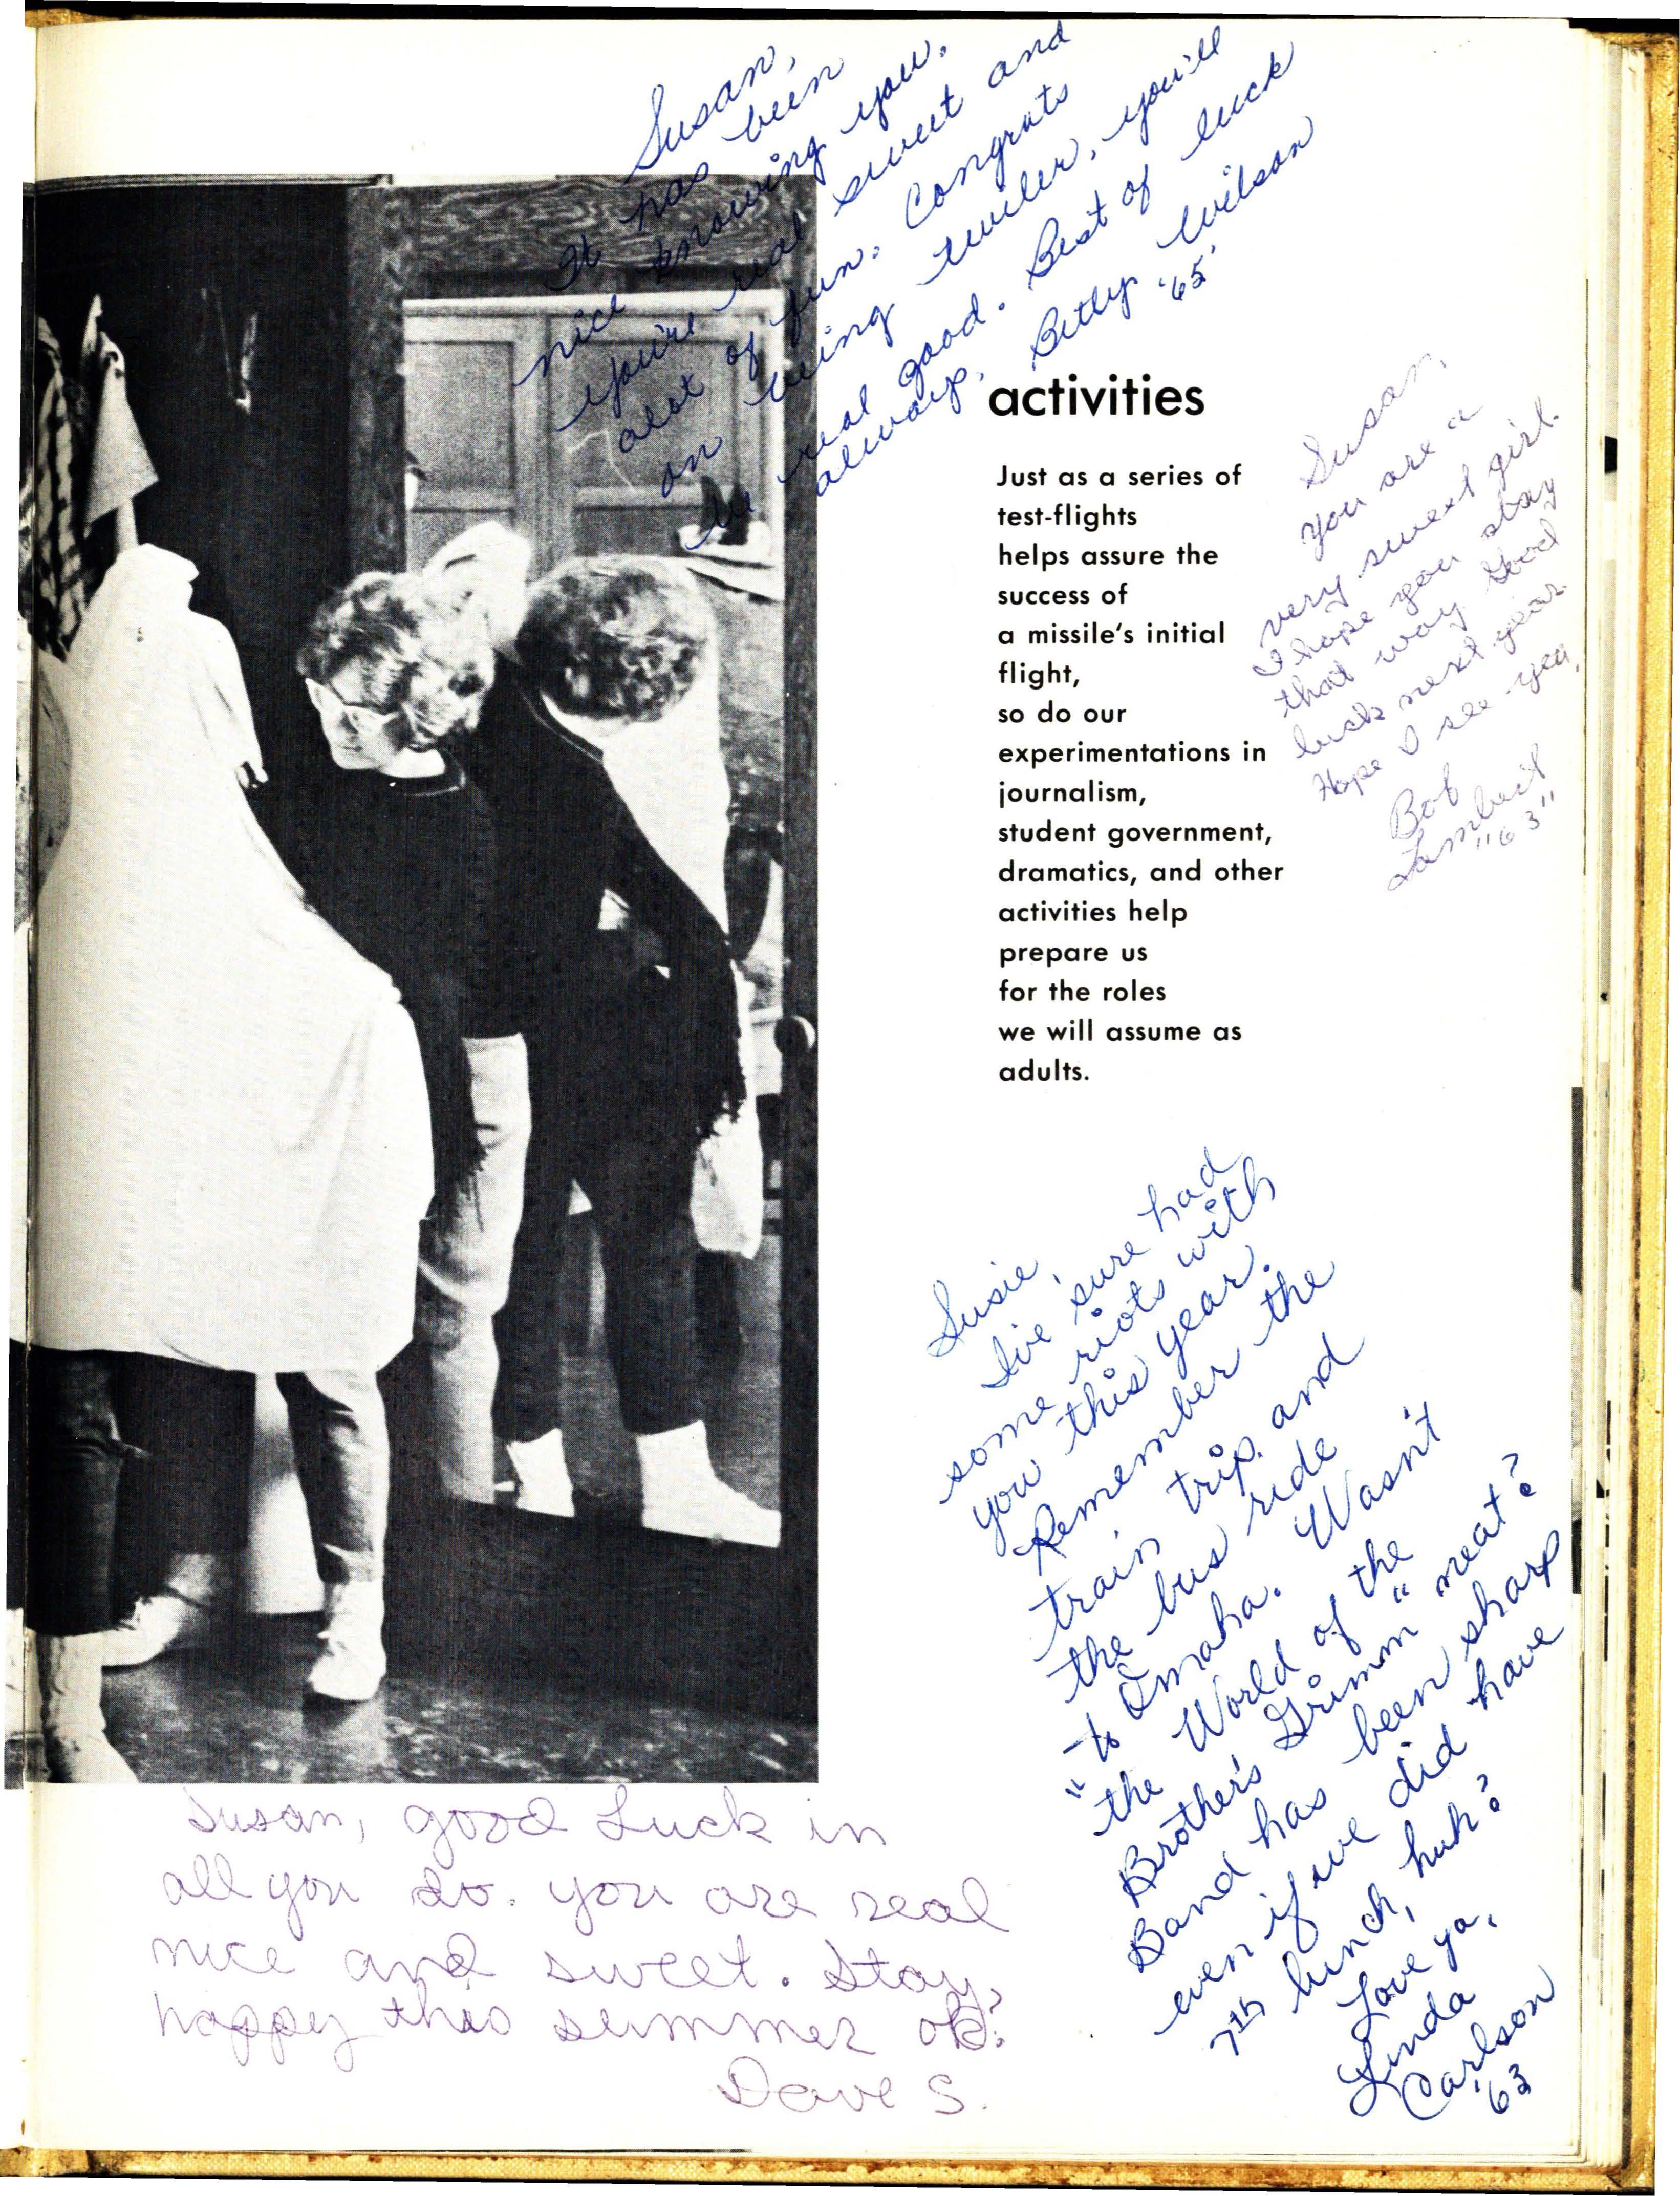 Susan,
It has been
nice knowing you.
You're real sweet and
alot of fun. Congrats
on being twiler, you'll
be real good. Best of luck
always, Betty Wilson
'65'
activities
Just as a series of
test-flights
helps assure the
success of
a missile's initial
flight,
so do our
experimentations in
journalism,
student government,
dramatics, and other
activities help
prepare us
for the roles
we will assume as
adults.
Susan,
you are a
very sweet girl.
I hope you stay
that way Good
luck next year.
Hope I see ya,
Bob
Lambert
"63"
Susie,
I've sure had
some riots with
you this year.
Remember the
train trip and
the bus ride
to Omaha. Wasn't
"the World of the
Brother's Grimm" neat?
Band has been sharp
even if we did have
7th lunch, huh?
Love ya,
Linda
Carlson
'63
Susan, good Luck in
all you do. you are real
nice and sweet. Stay
happy this summer ok?
Dave S.